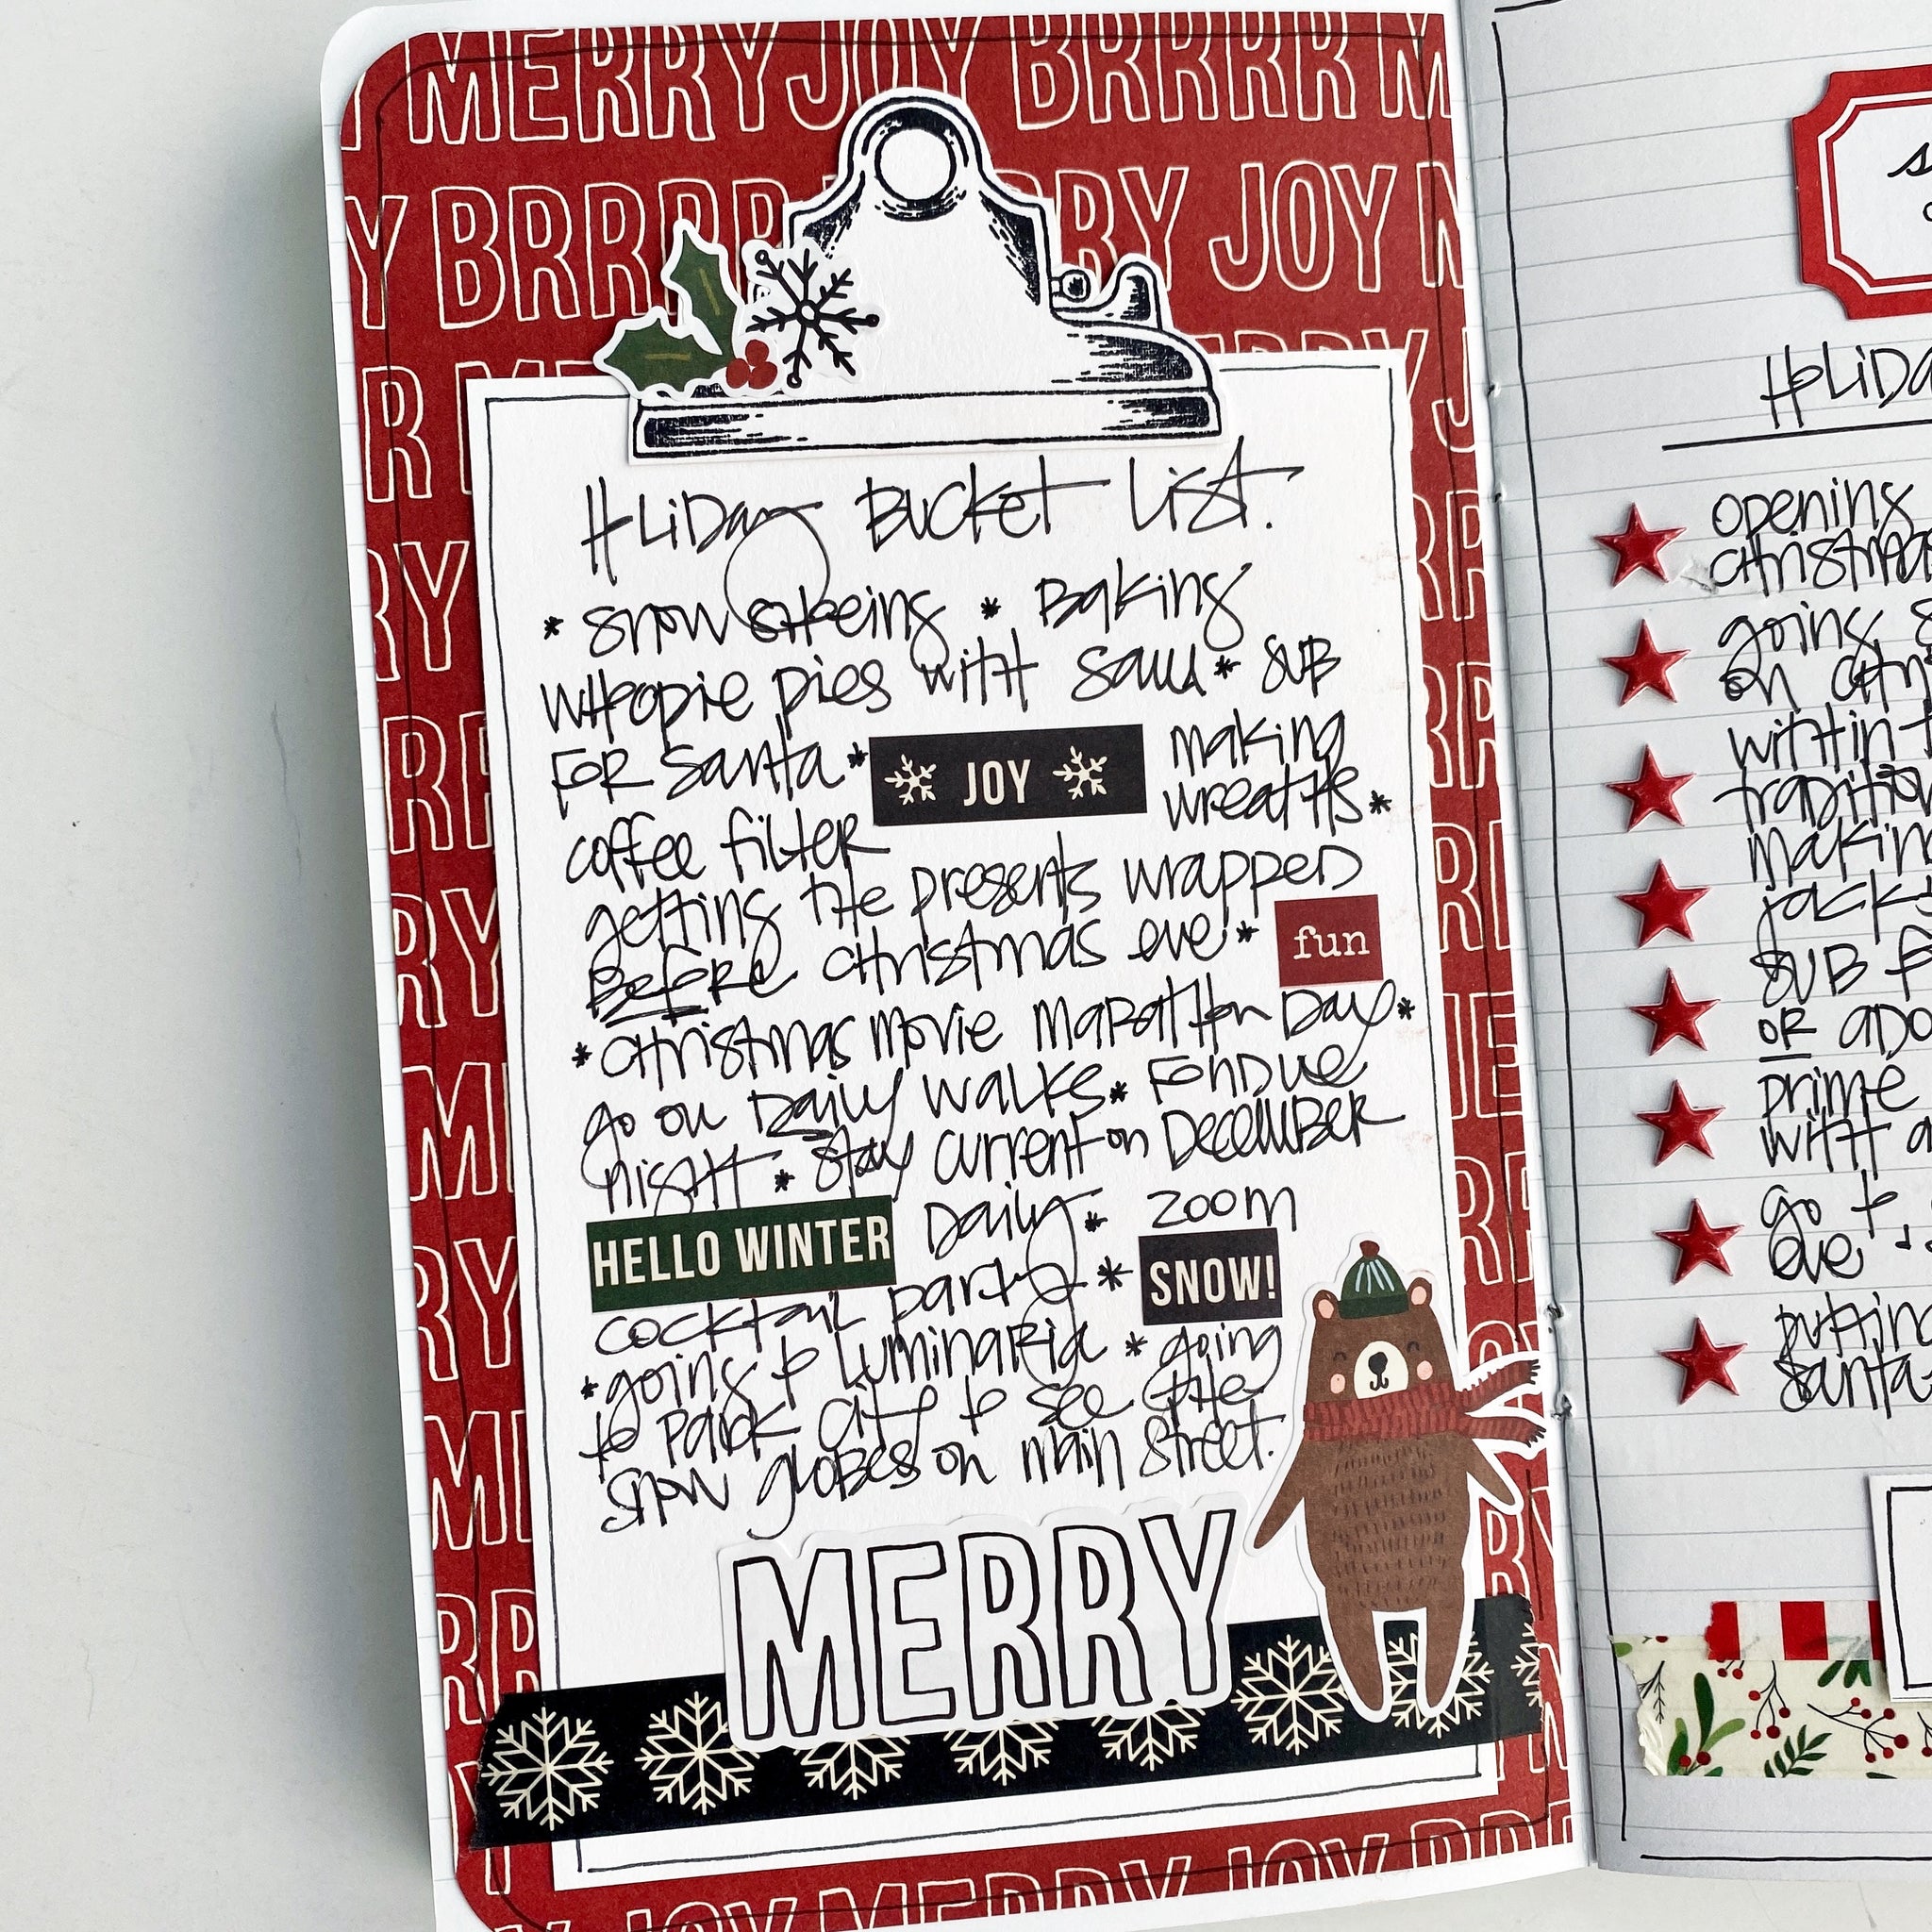 MERRY JOY BRRRR M
Y BRRRR RRY JOY M
HoLiDay Bucket List.
* snow shoeing * Baking
whoopie pies with Sam * SUB
FOR Santa *
* JOY *
making
wreaths *
coffee filter
getting the presents wrapped
BeFoRe christmas eve *
fun
* christmas movie maRathon Day *
go on Daily walks * FonDue
night * stay current on DeceMBeR
HELLO WINTER
Daily * zoom
cocktail party *
SNOW!
* going to LuminaRia * going
to PaRk City to see the
snow gloBes on main street.
MERRY
JOY MERRY BRRR JOY BRR
HoLiDa
opening
christmas
going s
on chri
within t
tradition
making
jack
SUB F
OR ado
prime
with a
go to
eve
putting
santa